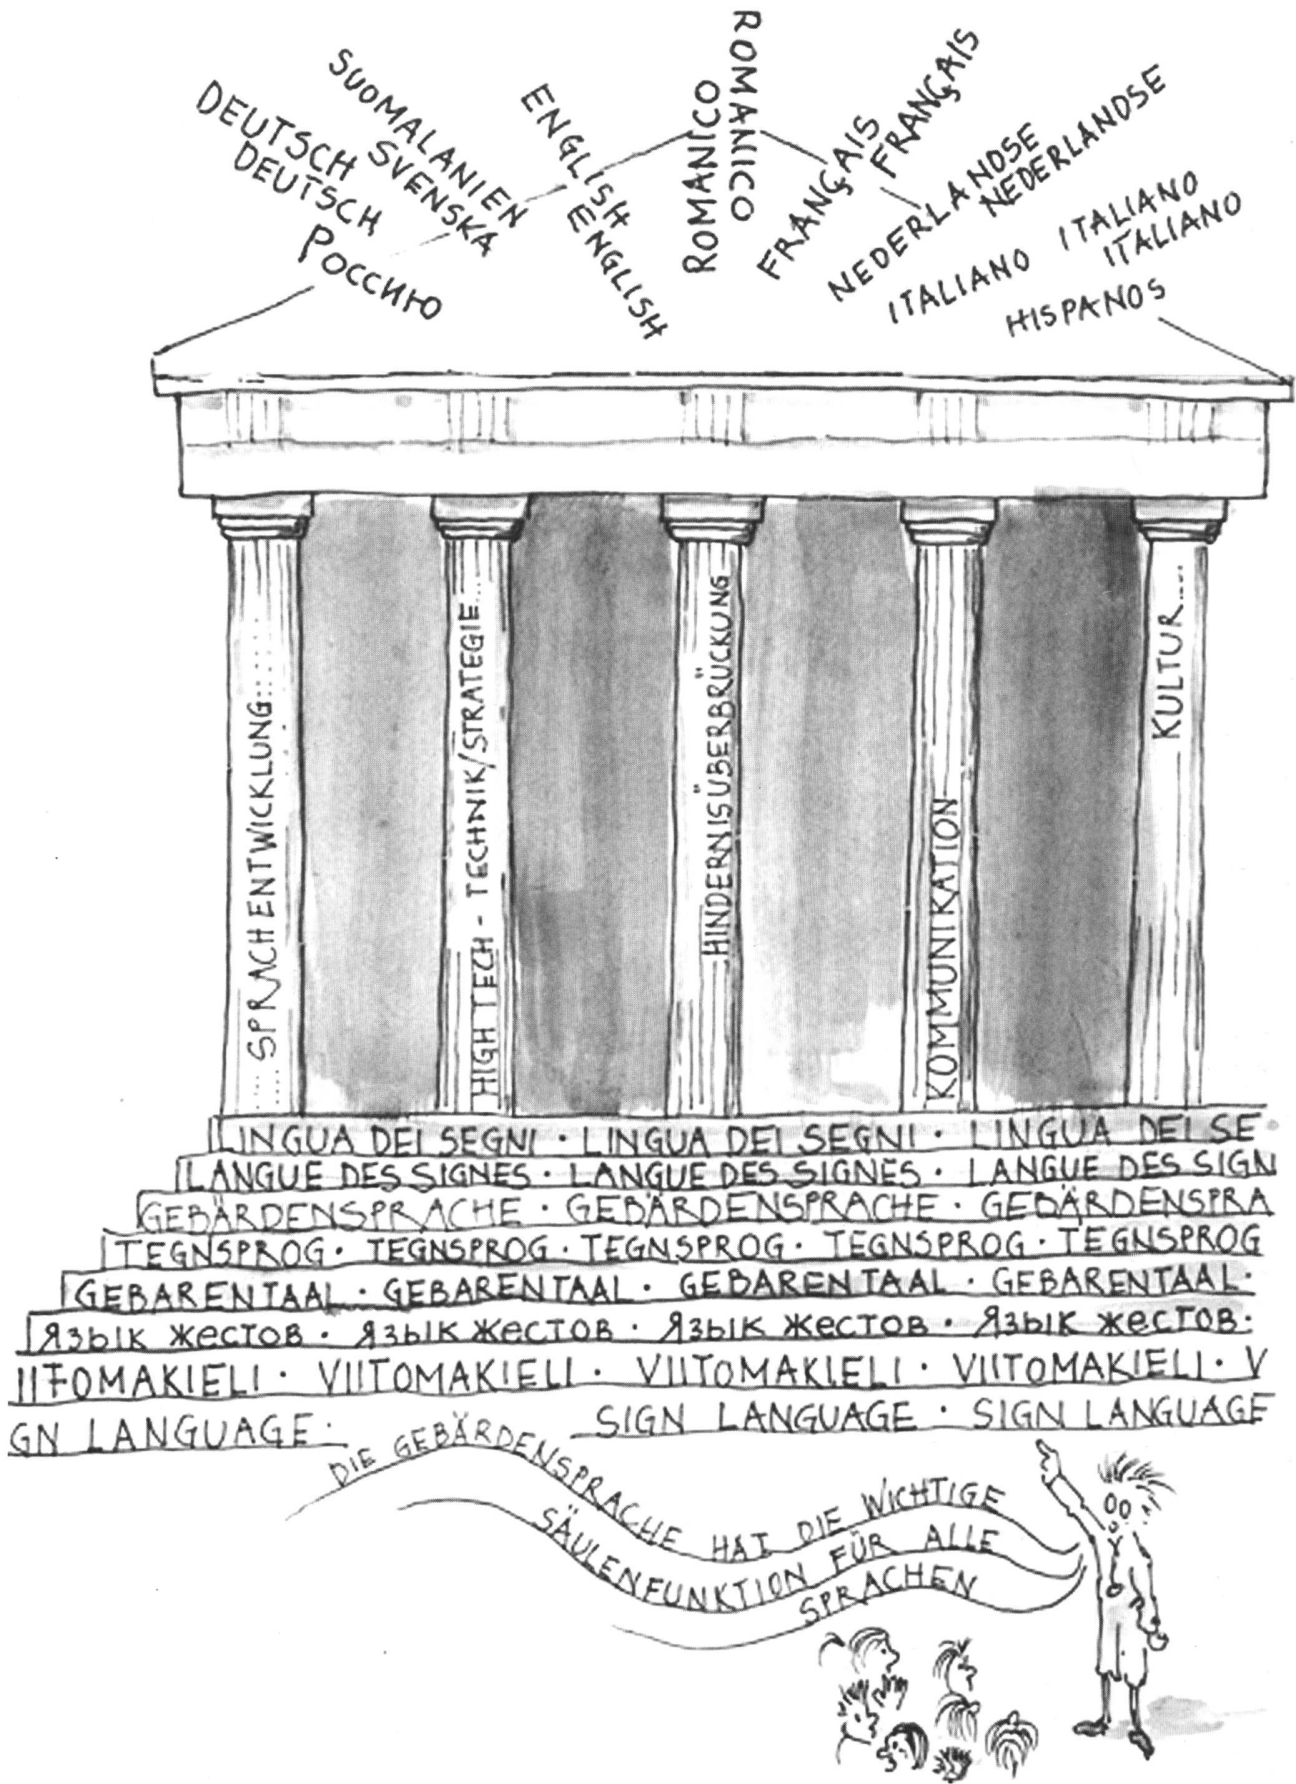 DEUTSCH
DEUTSCH
SUOMALANIEN
SVENSKA
Россию
ENGLISH
ENGLISH
ROMANICO
ROMANICO
FRANÇAIS
FRANÇAIS
NEDERLANDSE
NEDERLANDSE
ITALIANO
ITALIANO
ITALIANO
HISPANOS
...... SPRACHENTWICKLUNG::::::
HIGH TECH - TECHNIK/STRATEGIE....
HINDERNISÜBERBRÜCKUNG
KOMMUNIKATION
KULTUR....
LINGUA DEI SEGNI · LINGUA DEI SEGNI · LINGUA DEI SE
LANGUE DES SIGNES · LANGUE DES SIGNES · LANGUE DES SIGN
GEBÄRDENSPRACHE · GEBÄRDENSPRACHE · GEBÄRDENSPRA
TEGNSPROG · TEGNSPROG · TEGNSPROG · TEGNSPROG · TEGNSPROG
GEBARENTAAL · GEBARENTAAL · GEBARENTAAL · GEBARENTAAL ·
Язык жестов · Язык жестов · Язык жестов · Язык жестов ·
IITOMAKIELI · VIITOMAKIELI · VIITOMAKIELI · VIITOMAKIELI · V
GN LANGUAGE · SIGN LANGUAGE · SIGN LANGUAGE
DIE GEBÄRDENSPRACHE HAT DIE WICHTIGE
SÄULENFUNKTION FÜR ALLE
SPRACHEN